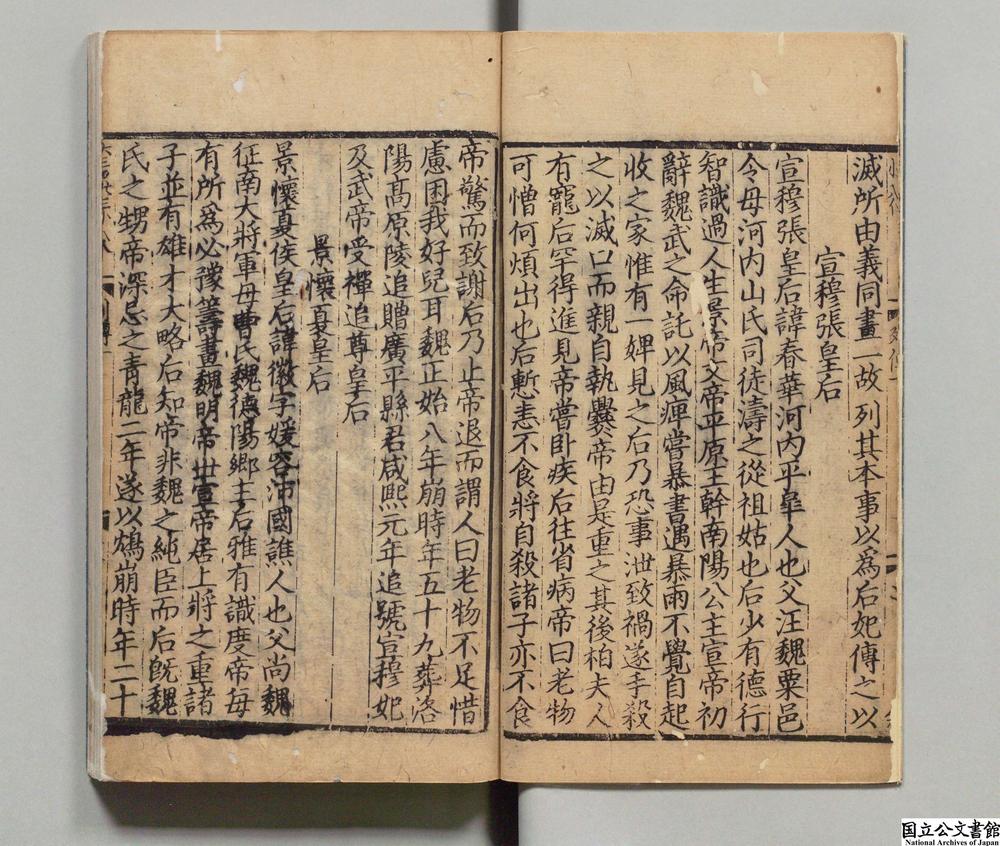 滅所由義同畫一故列其本事以爲后妃傳之以
宣穆張皇后
宣穆張皇后諱春華河内平皐人也父汪魏粟邑
令母河内山氏司徒濤之從祖姑也后少有德行
智識過人生景帝文帝平原王幹南陽公主宣帝初
辭魏武之命託以風痺嘗暴書遇暴雨不覺自起
收之家惟有一婢見之后乃恐事泄致禍遂手殺
之以滅口而親自執爨帝由是重之其後柏夫人
有寵后罕得進見帝嘗卧疾后往省病帝曰老物
可憎何煩出也后慙恚不食將自殺諸子亦不食
帝驚而致謝后乃止帝退而謂人曰老物不足惜
慮困我好兒耳魏正始八年崩時年五十九葬洛
陽髙原陵追贈廣平縣君咸熙元年追號宣穆妃
及武帝受禪追尊皇后
景懷夏皇后
景懷夏侯皇后諱徽字媛容沛國譙人也父尚魏
征南大將軍母曹氏魏德陽鄉主后雅有識度帝每
有所爲必豫籌畫魏明帝世宣帝居上將之重諸
子並有雄才大略后知帝非魏之純臣而后旣魏
氏之甥帝深忌之青龍二年遂以鴆崩時年二十
国立公文書館
National Archives of Japan